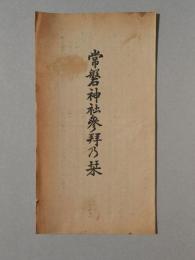 常磐神社參拜乃栞